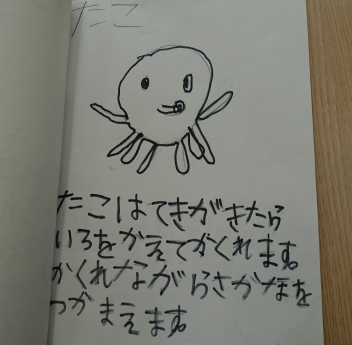 たこ
たこはてきがきたら
いろをかえてかくれます。
かくれながらさかなを
つかまえます。